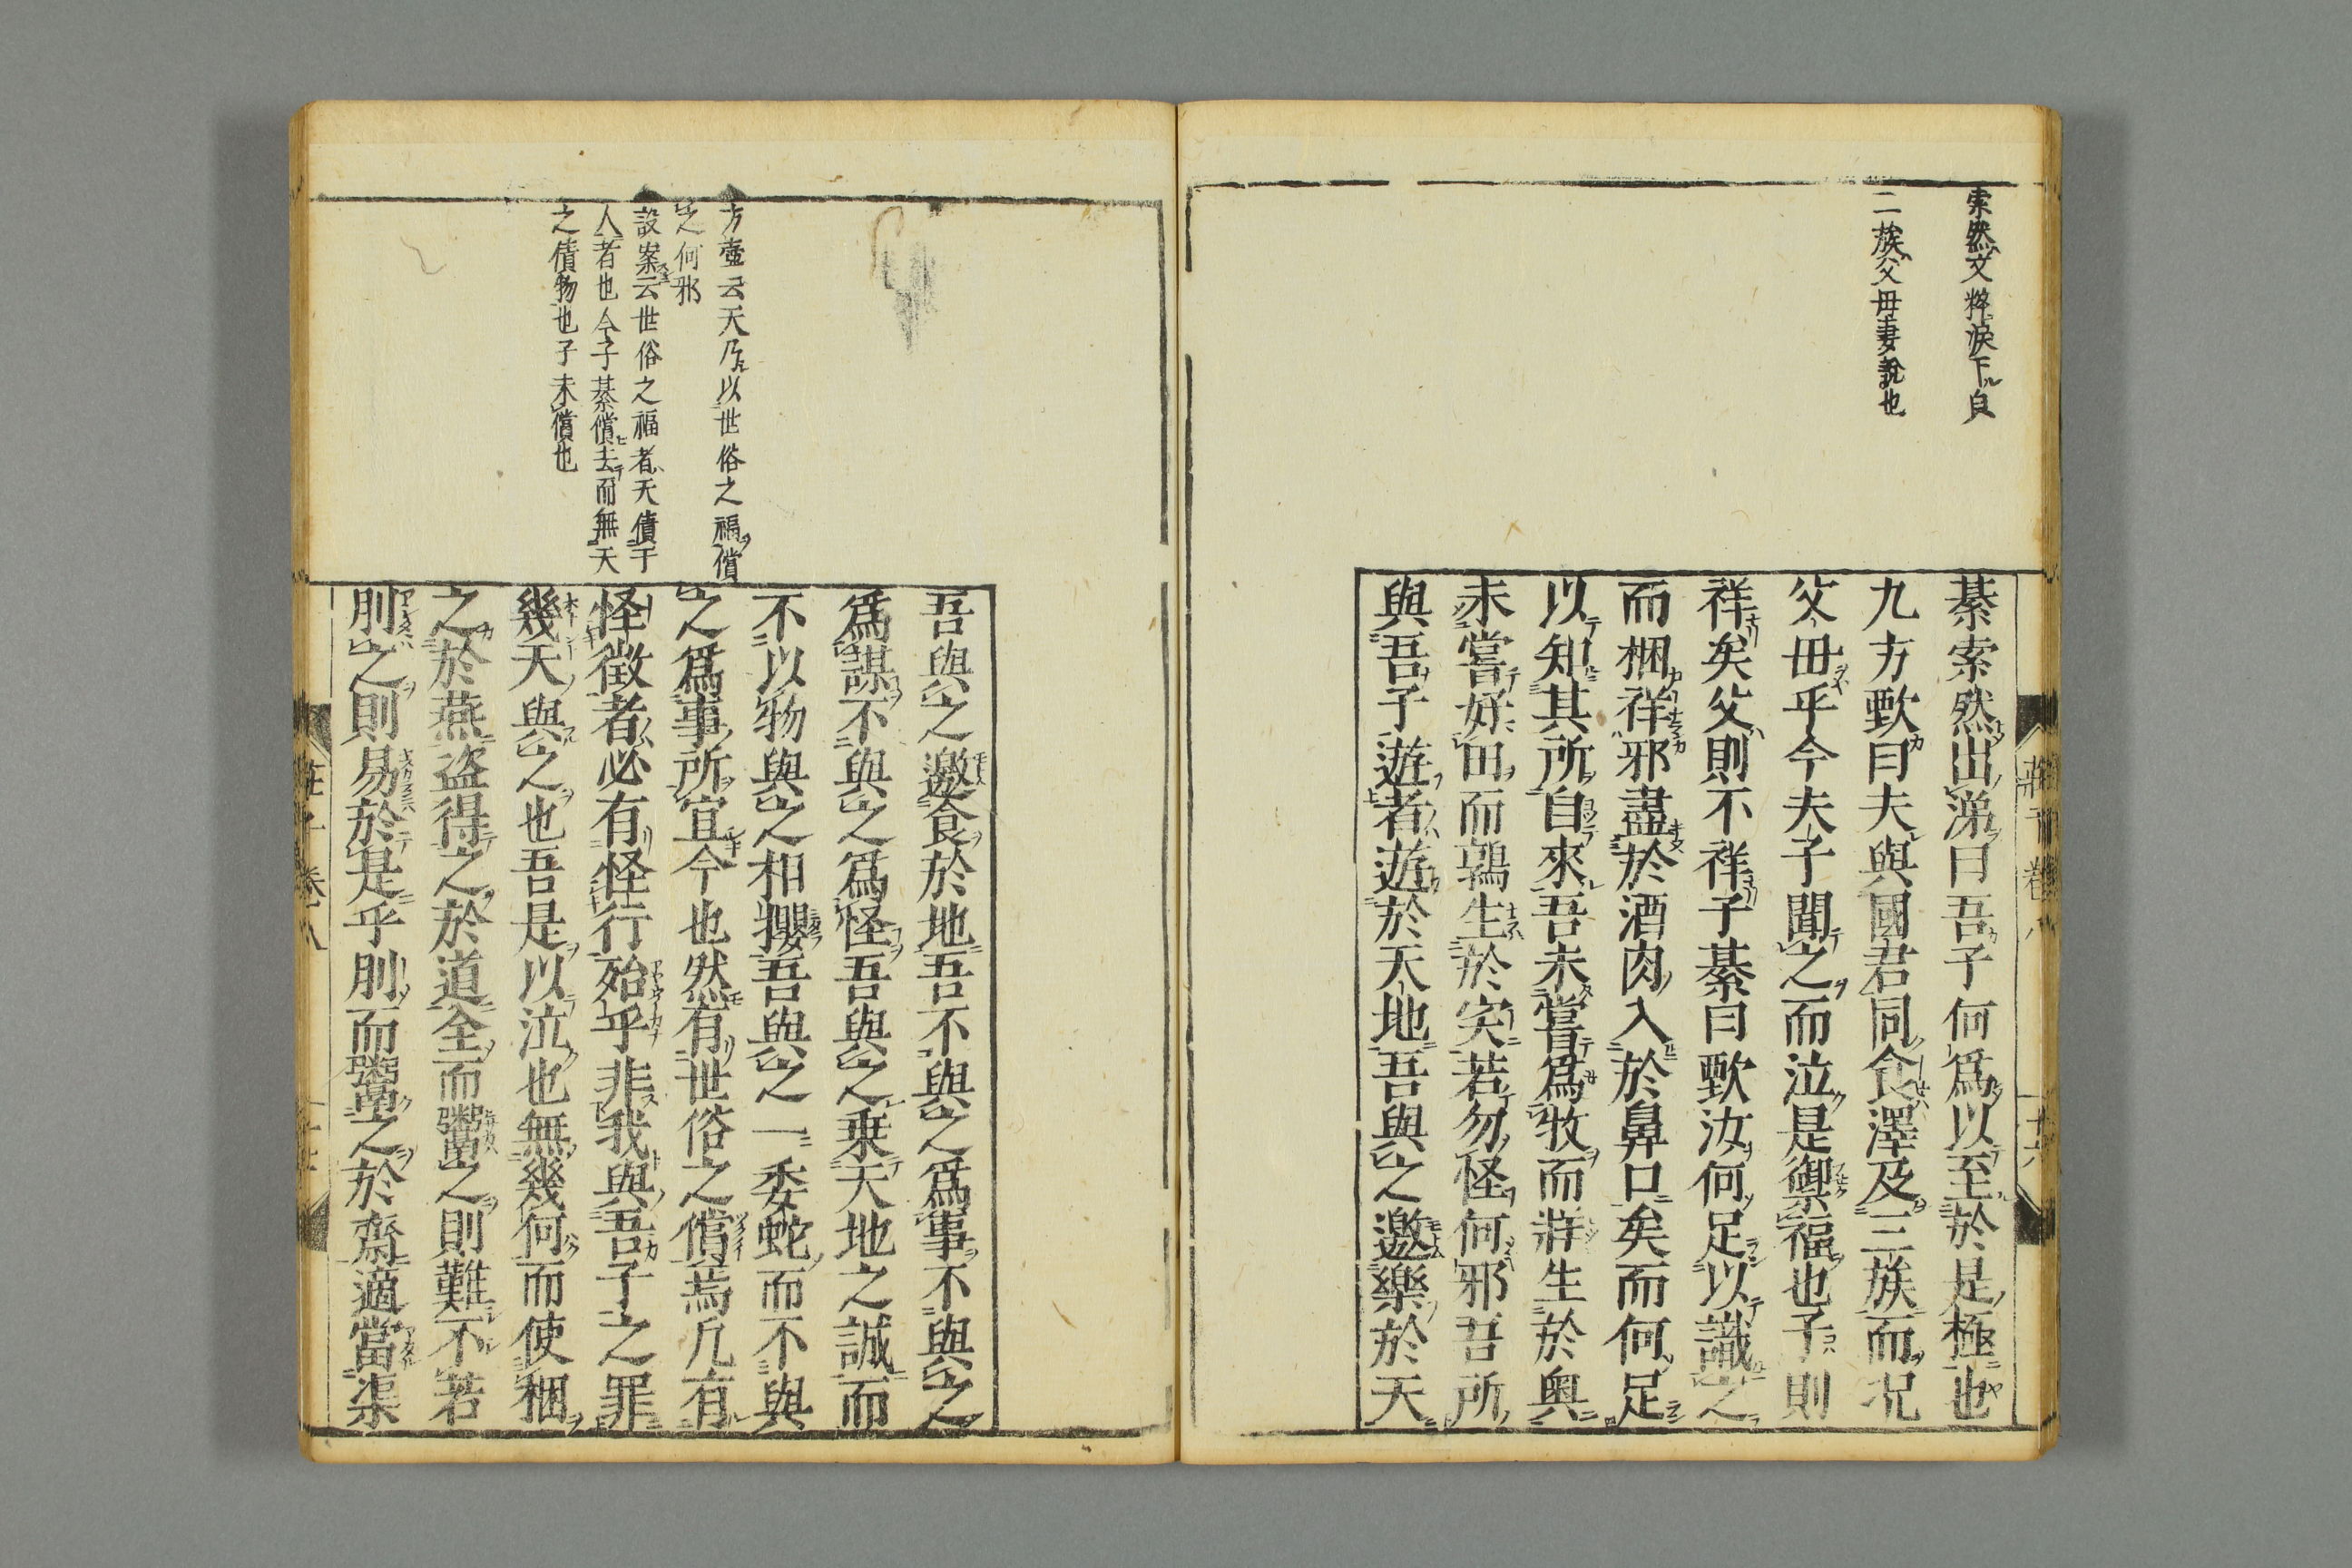 索然文粹淚下皃
二族父毋妻說也
綦索然出涕曰吾子何爲以至於是極也
九方歅曰夫與國君同食澤及三族而况
父毋乎今夫子聞之而泣是禦福也子則
祥矣父則不祥子綦曰歅汝何足以識之
而梱祥邪盡於酒肉入於鼻口矣而何足
以知其所自來吾未嘗爲牧而牂生於奧
未嘗好田而鶉生於宎若勿怪何邪吾所
與吾子遊者遊於天地吾與之邀樂於天
方壷云天乃以世俗之福償
之何邪
設案云世俗之福者天債于
人者也今子綦償去而無天
之債物也子未償也
吾與之邀食於地吾不與之爲事不與之
爲謀不與之爲怪吾與之乗天地之誠而
不以物與之相攖吾與之一委蛇而不與
之爲事所宜今也然有世俗之償焉凡有
怪徵者必有怪行殆乎非我與吾子之罪
幾天與之也吾是以泣也無幾何而使梱
之於燕盗得之於道全而鬻之則難不若
刖之則易於是乎刖而鬻之於齊適當渠
莊子卷八